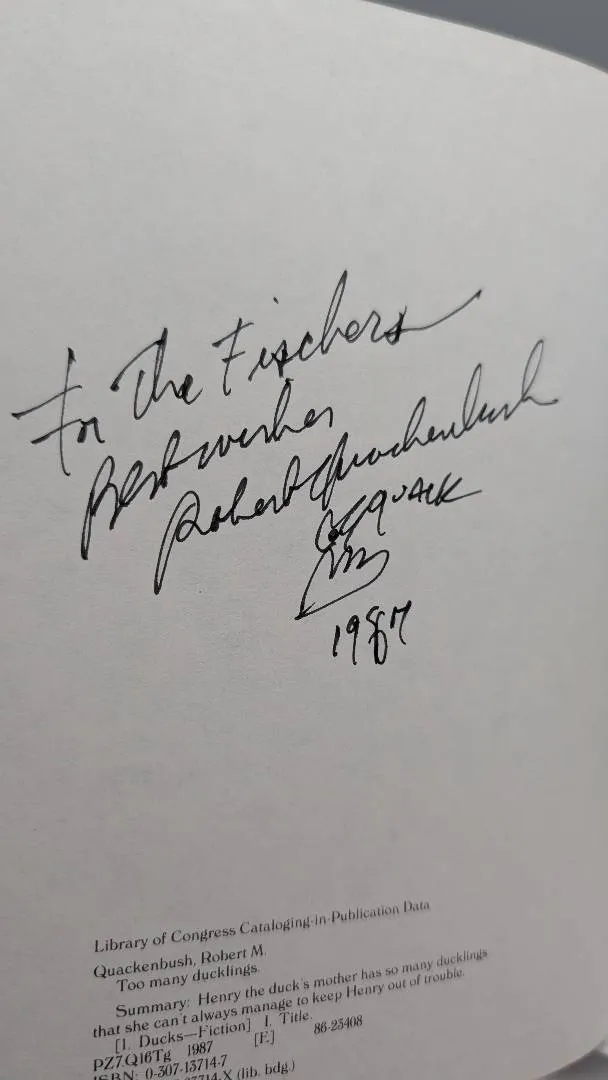 For The Fischers
Best wishes
Robert Quackenbush
QUACK
1987
Library of Congress Cataloging-in-Publication Data
Quackenbush, Robert M.
Too many ducklings.
Summary: Henry the duck's mother has so many ducklings
that she can't always manage to keep Henry out of trouble.
[1. Ducks—Fiction] I. Title.
PZ7.Q16Tg 1987 [E] 86-23408
ISBN: 0-307-13714-7
13714-X (lib. bdg.)